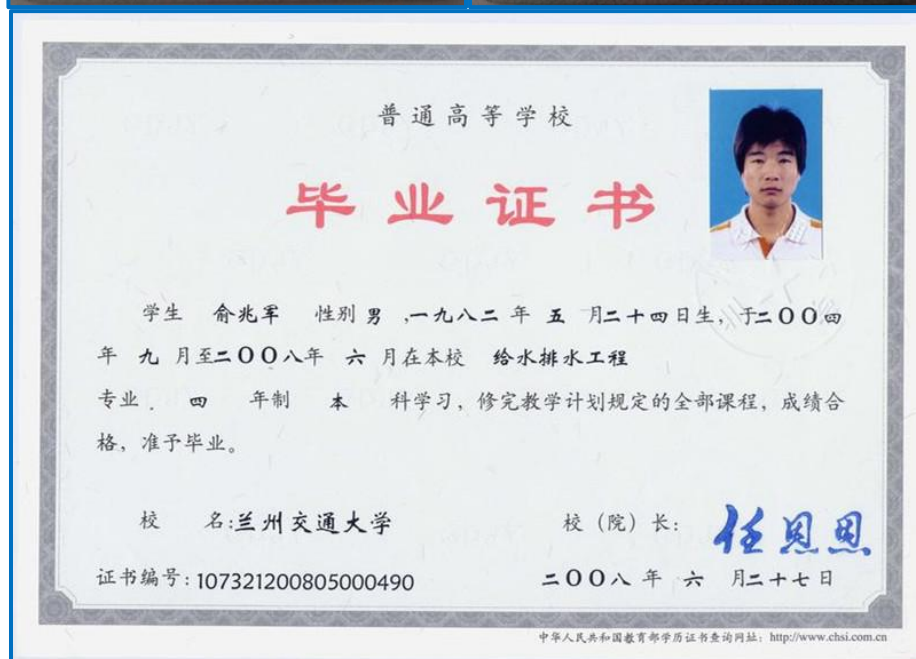 普通高等学校
毕业证书
学生 俞兆军 性别 男 ,一九八二 年 五 月二十四日生，于二〇〇四
年 九 月至二〇〇八年 六 月在本校 给水排水工程
专业 . 四 年制 本 科学习，修完教学计划规定的全部课程，成绩合
格，准予毕业。
校 名:兰州交通大学 校（院）长: 任恩恩
证书编号:107321200805000490 二〇〇八 年 六 月二十七日
中华人民共和国教育部学历证书查询网址: http://www.chsi.com.cn